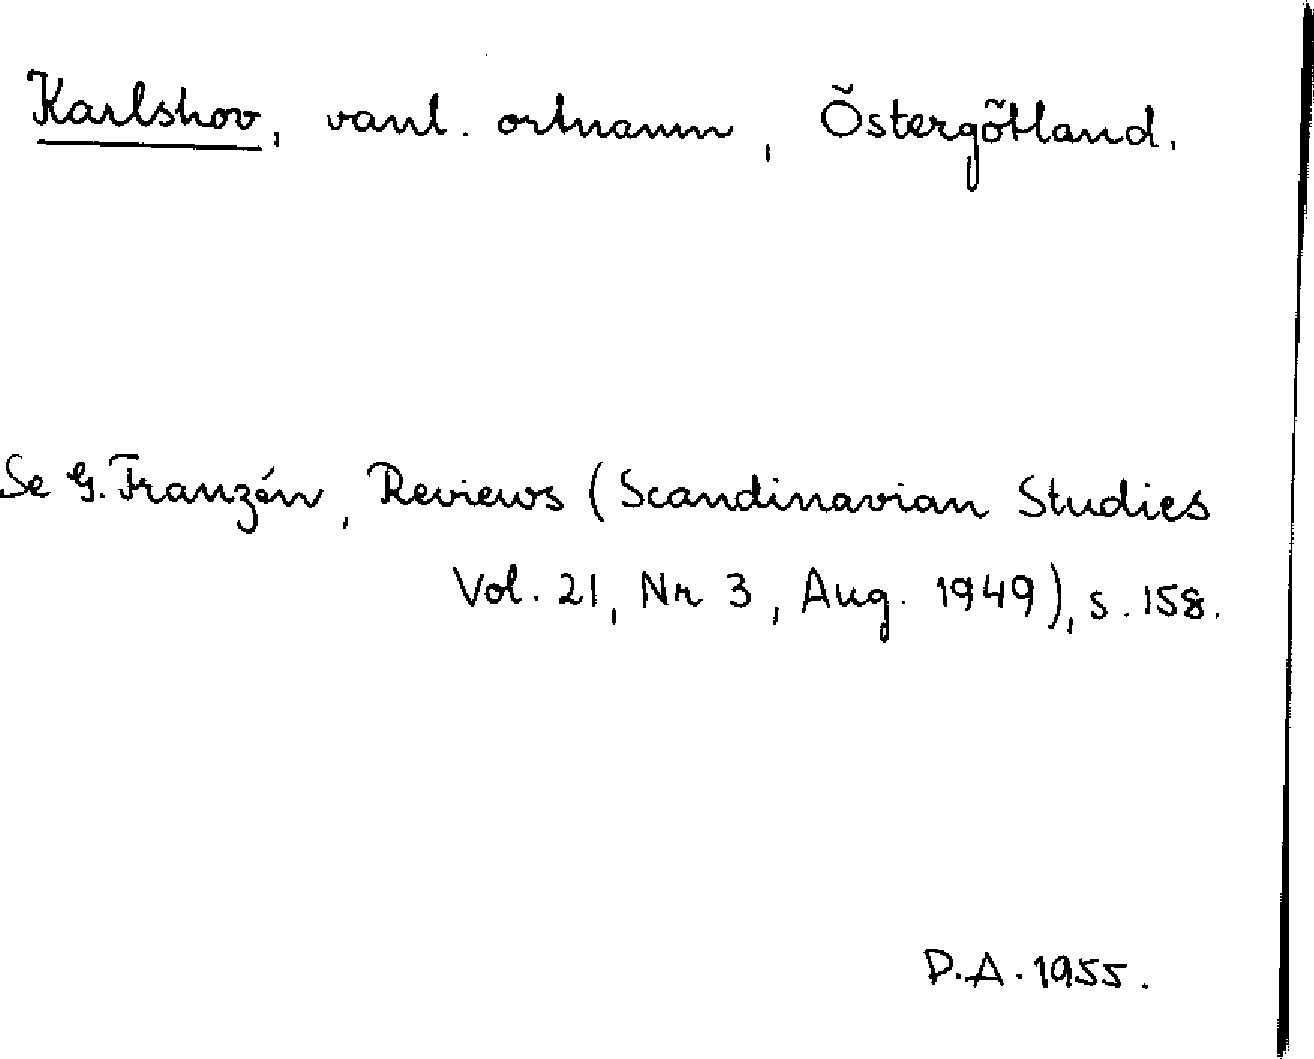 Karlshov, vanl. ortnamn, Östergötland.
Se G. Franzén, Reviews (Scandinavian Studies
Vol. 21, Nr 3, Aug. 1949), s. 158.
D.A. 1955.